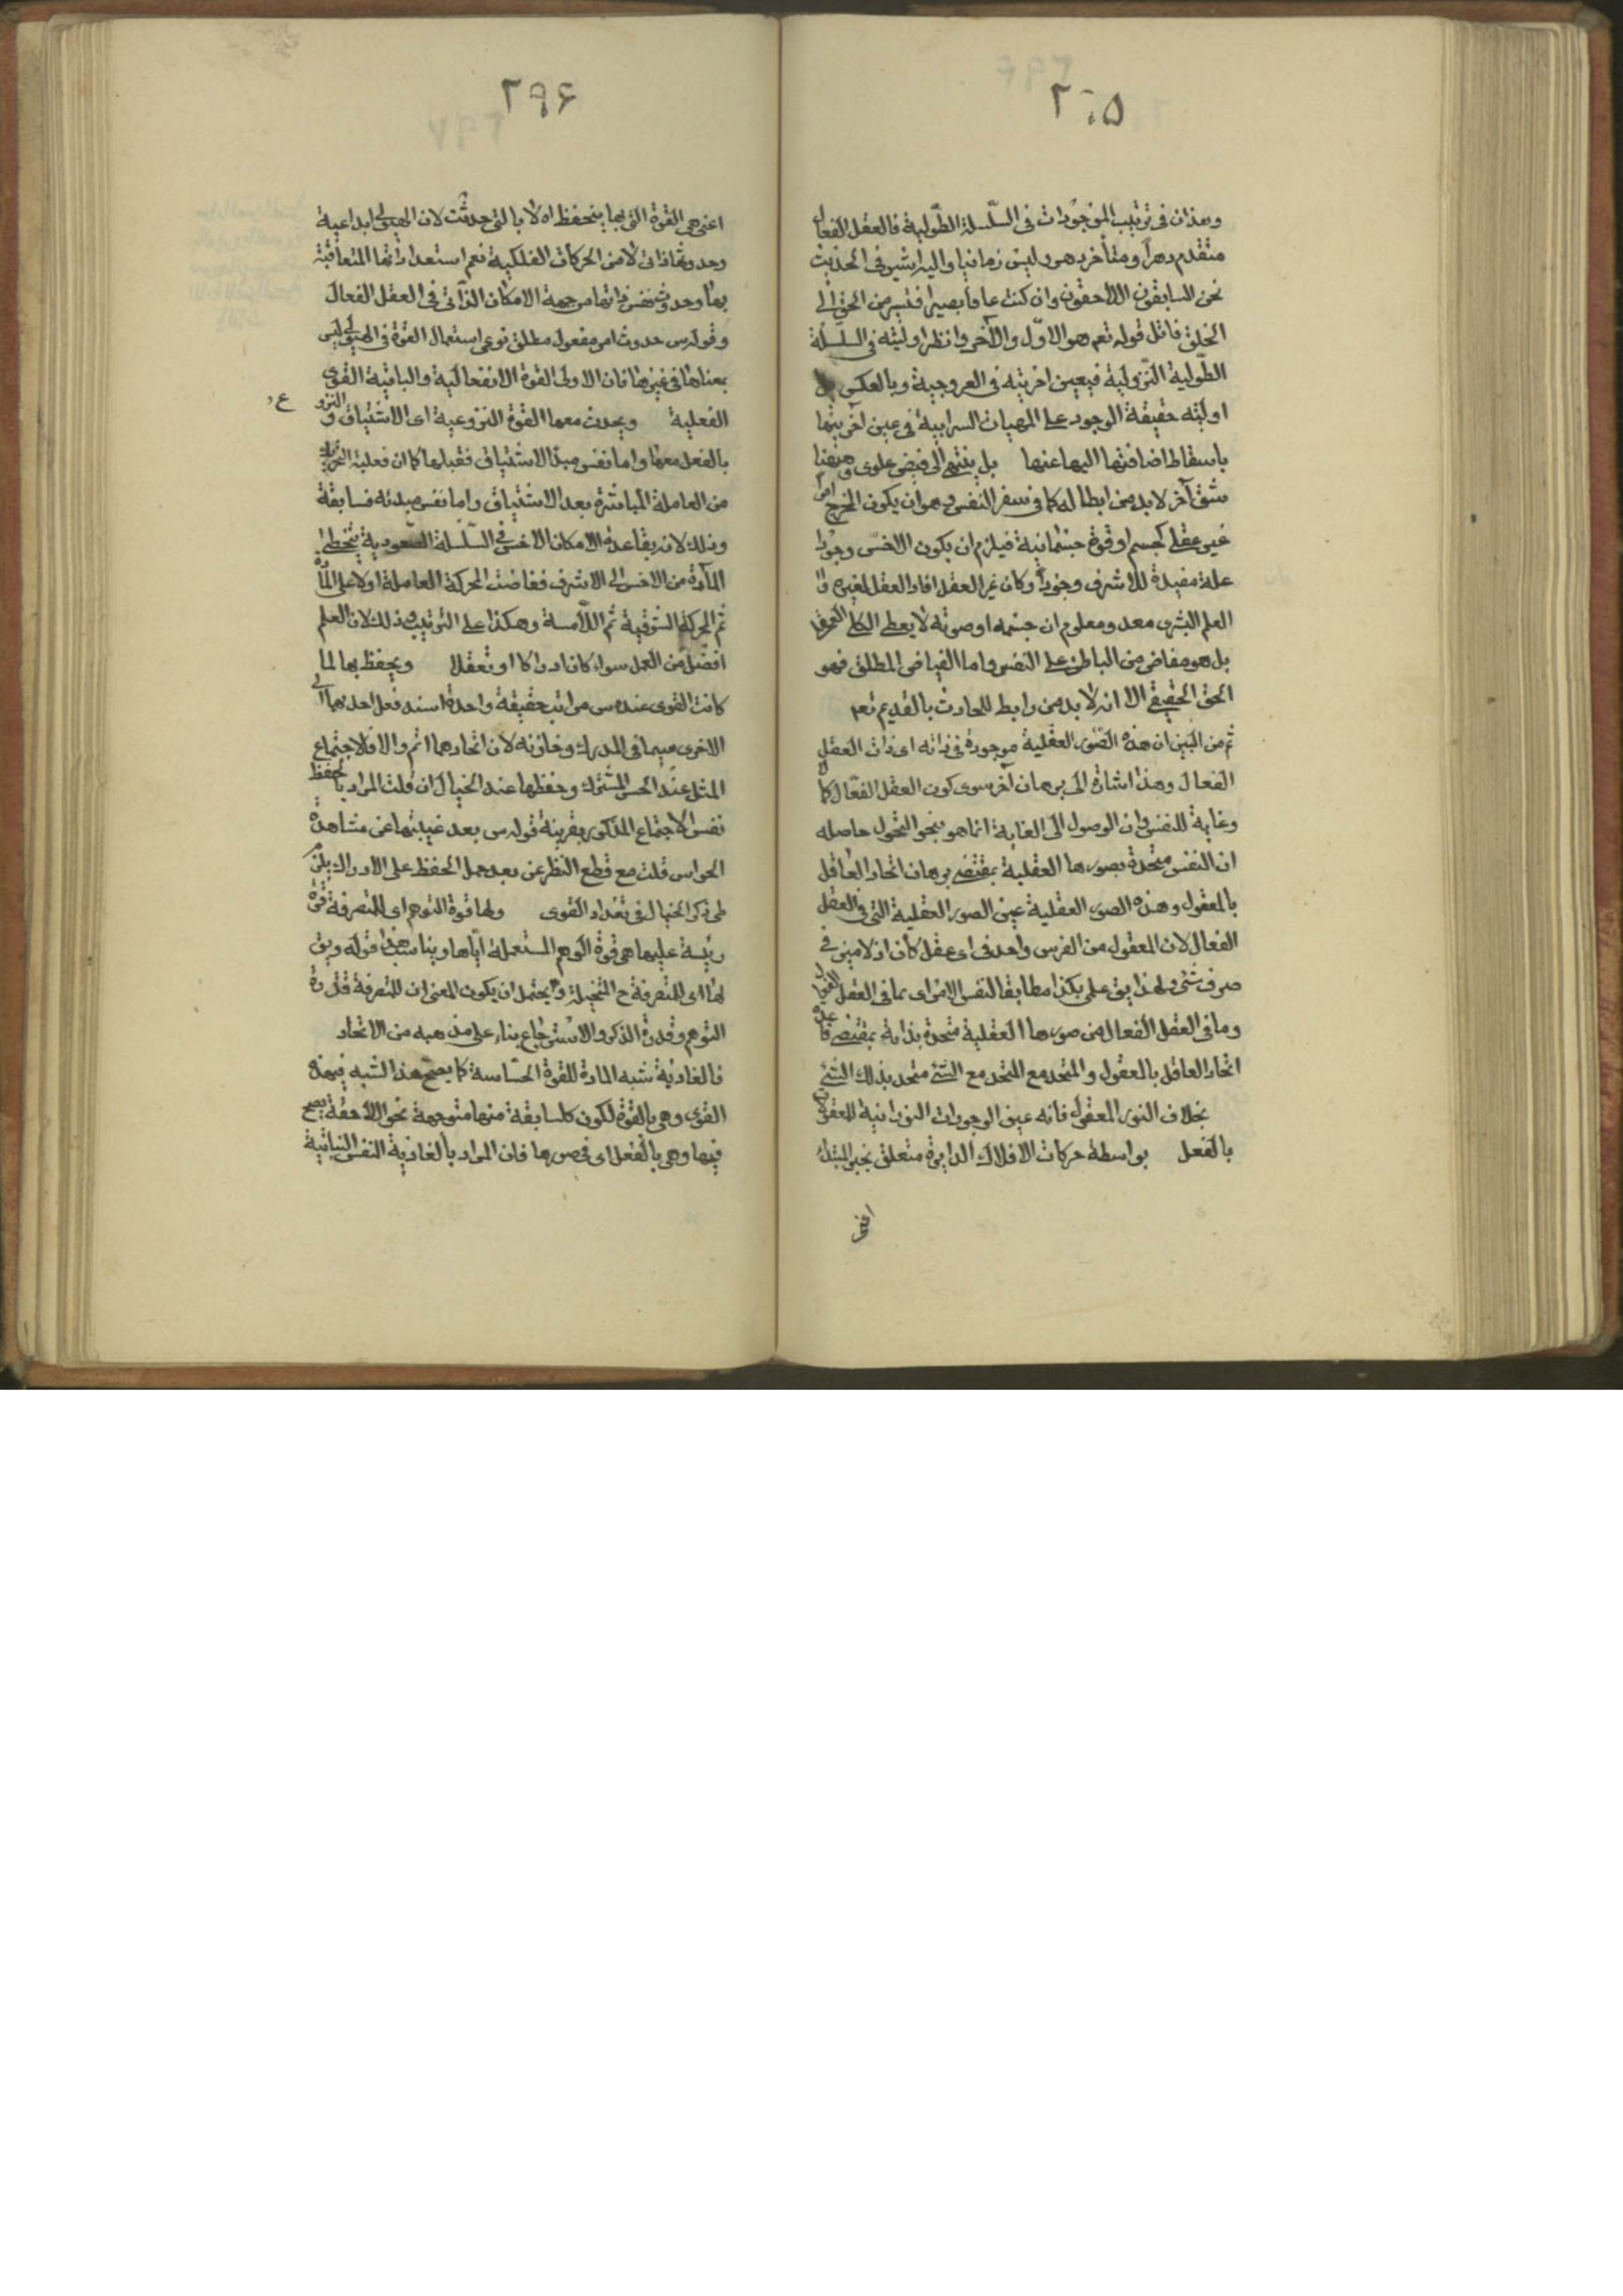 ٢٩٥
وهذان فى ترتيب الموجودات فى السّلسلة الطّولية فالعقل الفعال
متقدم دهراً ومتأخر دهر وليس زمانيا واليه اشير فى الحديث
نحن السابقون اللاحقون وان كنت عارفا بصيرا فتسير من الحق الى
الخلق فاتل قوله تعم هو الاوّل والآخر وانظر اوليته فى السلسلة
الطّولية النّزولية فبعين اخريته فى العروجية وبالعكس بل
اوليته حقيقة الوجود على المهيات السرابية فى عين آخريتها
باسقاط اضافتها اليها عنها بل ينتهى الى فيض علوى وهيهنا
شق آخر لابد من ابطاله كما فى سفر النفس وهو ان يكون المخرج امر
غير عقلى كجسم او قوة جسمانية فيلزم ان يكون الاخسّ وجودا
علة مفيدة للاشرف وجوداً وكان غير العقل افاد العقل لغيره و
العلم البشرى معد ومعلوم ان جسمه او صوته لا يعطى الكلى
بل هو مفاض من الباطن على النفس واما الفياض المطلق فهو
الحق الحقيقى الا انه لابد من رابط للحادث بالقديم تعم
ثم من البين ان هذه الصّور العقلية موجودة فى ذاته اى ذات العقل
الفعال وهذا اشارة الى برهان آخر سوى كون العقل الفعّال كمالا
وغاية للنفس وان الوصول الى الغاية انما هو بنحو التحول حاصله
ان النفس متحدة بصورها العقلية بمقتضى برهان اتحاد العاقل
بالمعقول وهذه الصور العقلية عين الصور العقلية التى فى العقل
الفعال لان المعقول من الفرس واحد فى اى عقل كان اذ لا ميز فى
صرف شئ ولهذا يق علمى بكذا مطابق النفس الامر اى بما فى العقل الفعال
وما فى العقل الفعال من صورها العقلية متحدة بذاته بمقتضى قاعدة
اتحاد العاقل بالمعقول والمتحد مع المتحد مع الشئ متحد بذلك الشئ
بخلاف النور المعقول فانه عين الوجودات النورانية للمعقولات
بالفعل بواسطة حركات الافلاك الدايرة متعلق بخبر المبتداء
اعنى
٢٩۶
اعنى هى القوة التى بها ينحفظ اه لا بالتى حدثت لان الهيولى ابداعية
وحدوثها ذاتى لا من الحركات الفلكية نعم استعداداتها المتعاقبة
بها وحدوث نفس ذاتها من جهة الامكان الذاتى فى العقل الفعال
وقوله س حدوث امر مفعول مطلق نوعى استعمال القوة فى الهيولى ليس
بمعناها فى غيرها فان الاولى القوة الانفعالية والباقية القوى
الفعلية ويحدث معها القوة النزوعية اى الاشتياق والنزو ع
بالفعل معها واما نفس مبدء الاشتياق فقبلها كما ان فعلية التحريك
من العاملة المباشرة بعد الاشتياق واما نفس مبدئه فسابقة
وذلك لانه بقاعدة الامكان الاخس فى السّلسلة الصّعودية يتخطى
المآدة من الاخس الى الاشرف ففاضت الحركة العاملة اولا على المادّة
ثم الحركة الشوقية ثم اللّامسة وهكذا على الترتيب وذلك لان العلم
افضل من العمل سواء كان ادراكا او تعقلا ويحفظ بها لما
كانت القوى عنده س مراتب حقيقة واحدة اسند فعل احديهما الى
الاخرى سيما فى المدرك وخازنه لان اتحادهما اتم والا فالاجتماع
المثل عند الحس المشترك وحفظها عند الخيال ان قلت المراد بالحفظ
نفس الاجتماع المذكور بقرينة قوله س بعد غيبتها عن مشاهدة
الحواس قلت مع قطع النظر عن بعد حمل الحفظ على الادراك يلزم
طى ذكر الخيال فى تعداد القوى ولها قوة التوهم اى للمتصرفة قوة
رئيسة عليها هى قوة الوهم المستعملة ايّاها ويناسب هذا قوله ويق
لها اى للمتصرفة ح المتخيلة ويحتمل ان يكون المعنى ان للمتصرفة قدرة
التوهم وقدرة الذكر والاسترجاع بناء على مذهبه من الاتحاد
فالغاذية شبه المادة للقوة الحسّاسة كما يصحّ هذا الشبه فى هذه
القوى وهى بالقوة لكون كل سابقة منها متوجهة نحو اللاحقة يصح
فيها وهى بالفعل اى فى صورها فان المراد بالغاذية النفس النباتية